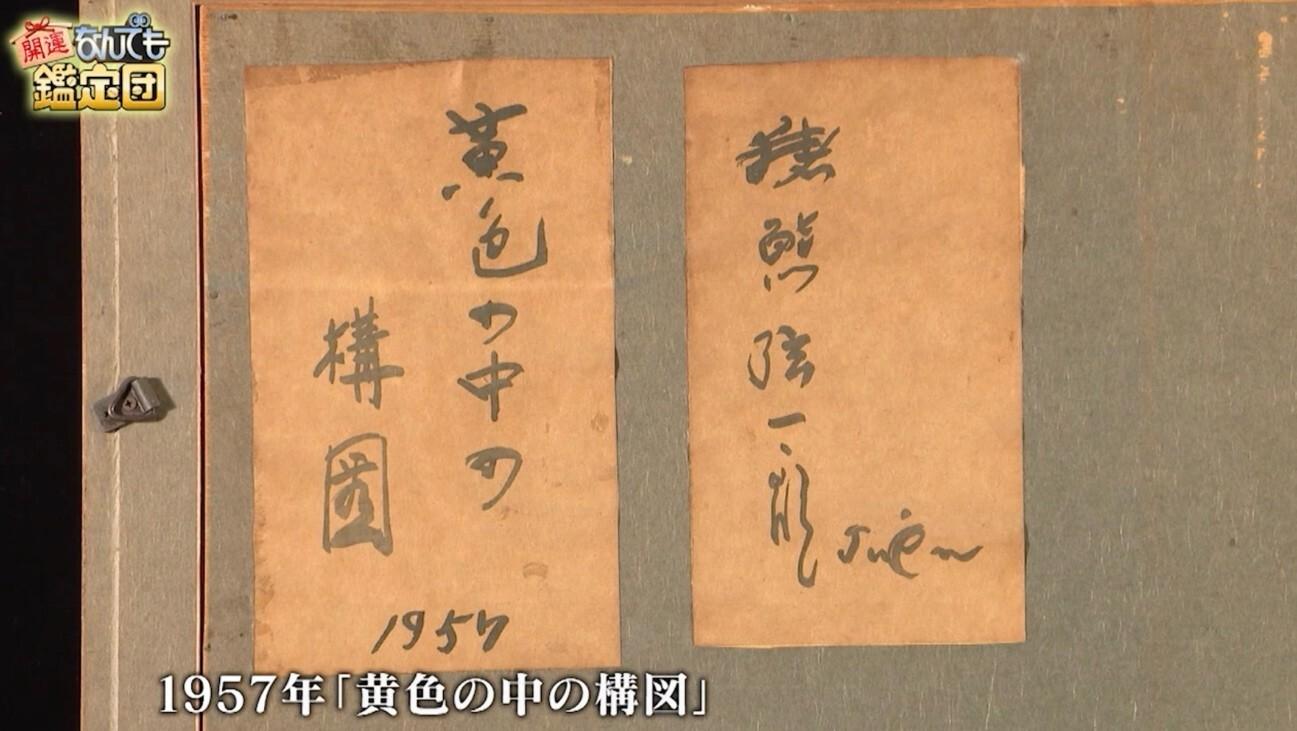 開運
なんでも
鑑定団
黄色の中の
構圖
1957
猪熊弦一郎
Guén
1957年「黄色の中の構図」